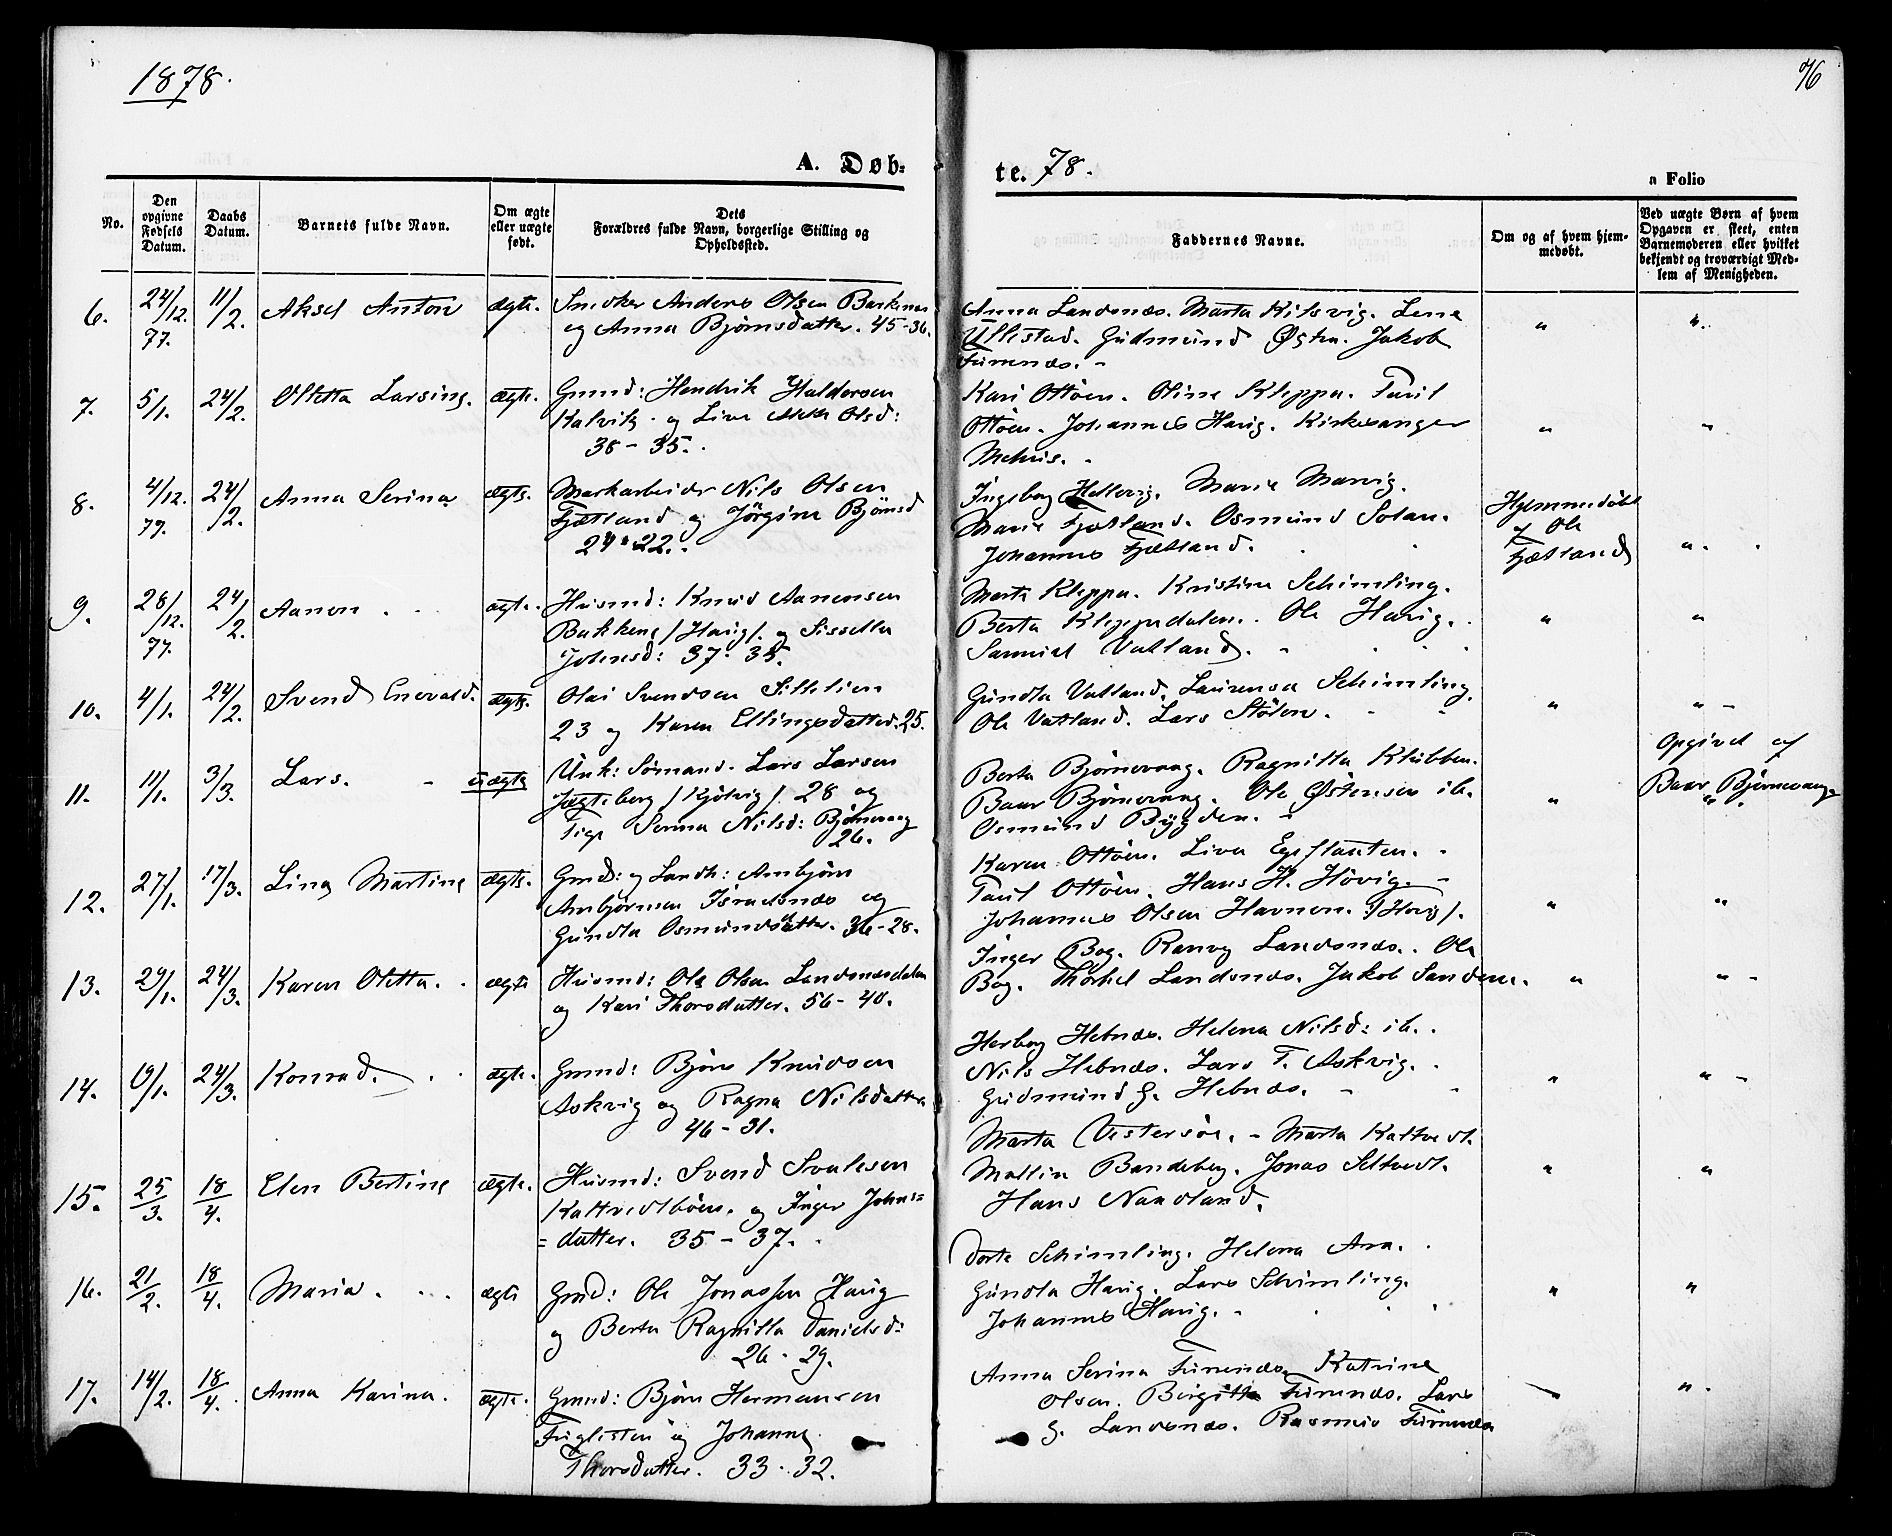 1878.
76
A. Døb-
te. 78.
a Folio
No.
Den opgivne Fødsels Datum.
Daabs Datum.
Barnets fulde Navn.
Om ægte eller uægte født.
Dets Forældres fulde Navn, borgerlige Stilling og Opholdssted.
Faddernes Navne.
Om og af hvem hjem-medøbt.
Ved uægte Børn af hvem Opgaven er skeet, enten Barnemoderen eller hvilket bekjendt og troværdigt Med-lem af Menigheden.
6. 24/12. 77. 11/2. Aksel Anton ægte. Snedker Anders Olsen
og Anna Bjørnsdatter. 45-36.
Anna Landsnæs. Marta Kilsvig. Lene
Ullestad. Gudmund Østra. Jakob
Furenæs. -
" "
7. 5/1. 24/2. Oletta Larsine. ægte. Gmnd: Hendrik Haldorsen
Kalvik og Live Olsd:
38-35.
Kari Ottøen. Oline Kleppa. Tauil
Ottøen. Johannes Havig. Kirkesanger
Mehus. -
" "
8. 4/12. 77. 24/2. Anna Serina ægte. Markarbeider Nils Olsen
Fjætland og Jørgine Bjørnsd
24-22.
Ingeborg Hellevig. Marie Marvig.
Marie Fjætland. Osmund Solan.
Johannes Fjætland.
Hjemmedøbt
af Ole
Fjætland
"
9. 28/12. 77. 24/2. Aanen. ægte. Husmd: Knud Aanensen
Bakkene /Havig/. og Sissella
Johnsd: 37-35.
Marta Kleppa. Kristine Schimling.
Berta Kleppedalen. Ole Havig.
Samuel Vatland. -
" "
10. 4/1. 24/2. Svend Enevald. ægte. Olai Svendsen
23 og Karen Ellingsdatter. 25.
Gundla Vatland. Laurensa Schimling.
Ole Vatland. Lars Stølen. -
" "
11. 11/1. 3/3. Lars. - uægte Unk: Sømand. Lars Larsen
Jægteberg /Kjølvig/ 28 og
Pige Serina Nilsd: Bjørnevaag
26.
Berta Bjørnevaag. Ragnilla Klubben.
Baar Bjørnevaag. Ole Østensen ib.
Osmund Bygden. -
"
Opgivet af
Baar Bjørnevaag
12. 27/1. 17/3. Line Martine ægte. Gmd: og Landh: Anbjørn
Anbjørnsen Israelsnæs og
Gundla Osmundsdatter. 36-28.
Karen Ottøen. Liva
Tauil Ottøen. Hans H. Høvig. -
Johannes Olsen Havnen. /Havig/.
" "
13. 29/1. 24/3. Karen Oletta. ægte Husmd: Ole Olsen Landsnæsdalen
og Kari Thorsdatter. 56-40.
Inger Bog. Ranvey Landsnæs. Ole
Bog. Thorkel Landsnæs. Jakob Sanden.
" "
14. 19/1. 24/3. Konrad. ægte. Gmnd: Bjørn Knudsen
Askvig og Ragna Nilsdatter
46-31.
Herborg Hebnæs. Helena Nilsd: ib.
Nils Hebnæs. Lars T. Askvig.
Gudmund G. Hebnæs. -
" "
15. 25/3. 18/4. Elen Bertine ægte. Husmd: Svend Svalesen
Kaltvedtbøen. og Inger Johns=
=datter. 35-37.
Marta Vestersøe. - Marta Kaltvedt.
Mallin Bandeberg. Jonas Seltvedt.
Hans Nandland.
" "
16. 21/2. 18/4. Maria. ægte Gmd: Ole Jonassen Havig
og Berta Ragnilla Danielsd:
26-29.
Dorte Schimling. Helena Ara.
Gundla Havig. Lars Schimling.
Johannes Havig. -
" "
17. 14/2. 18/4. Anna Karina. ægte. Gmnd: Bjørn Hermansen
Fuglesten og Johanna
Thorsdatter. 33-32.
Anna Serina Furenæs. Katrine
Olsen. Birgitta Furenæs. Lars
G. Landsnæs. Rasmus Furenæs
" "